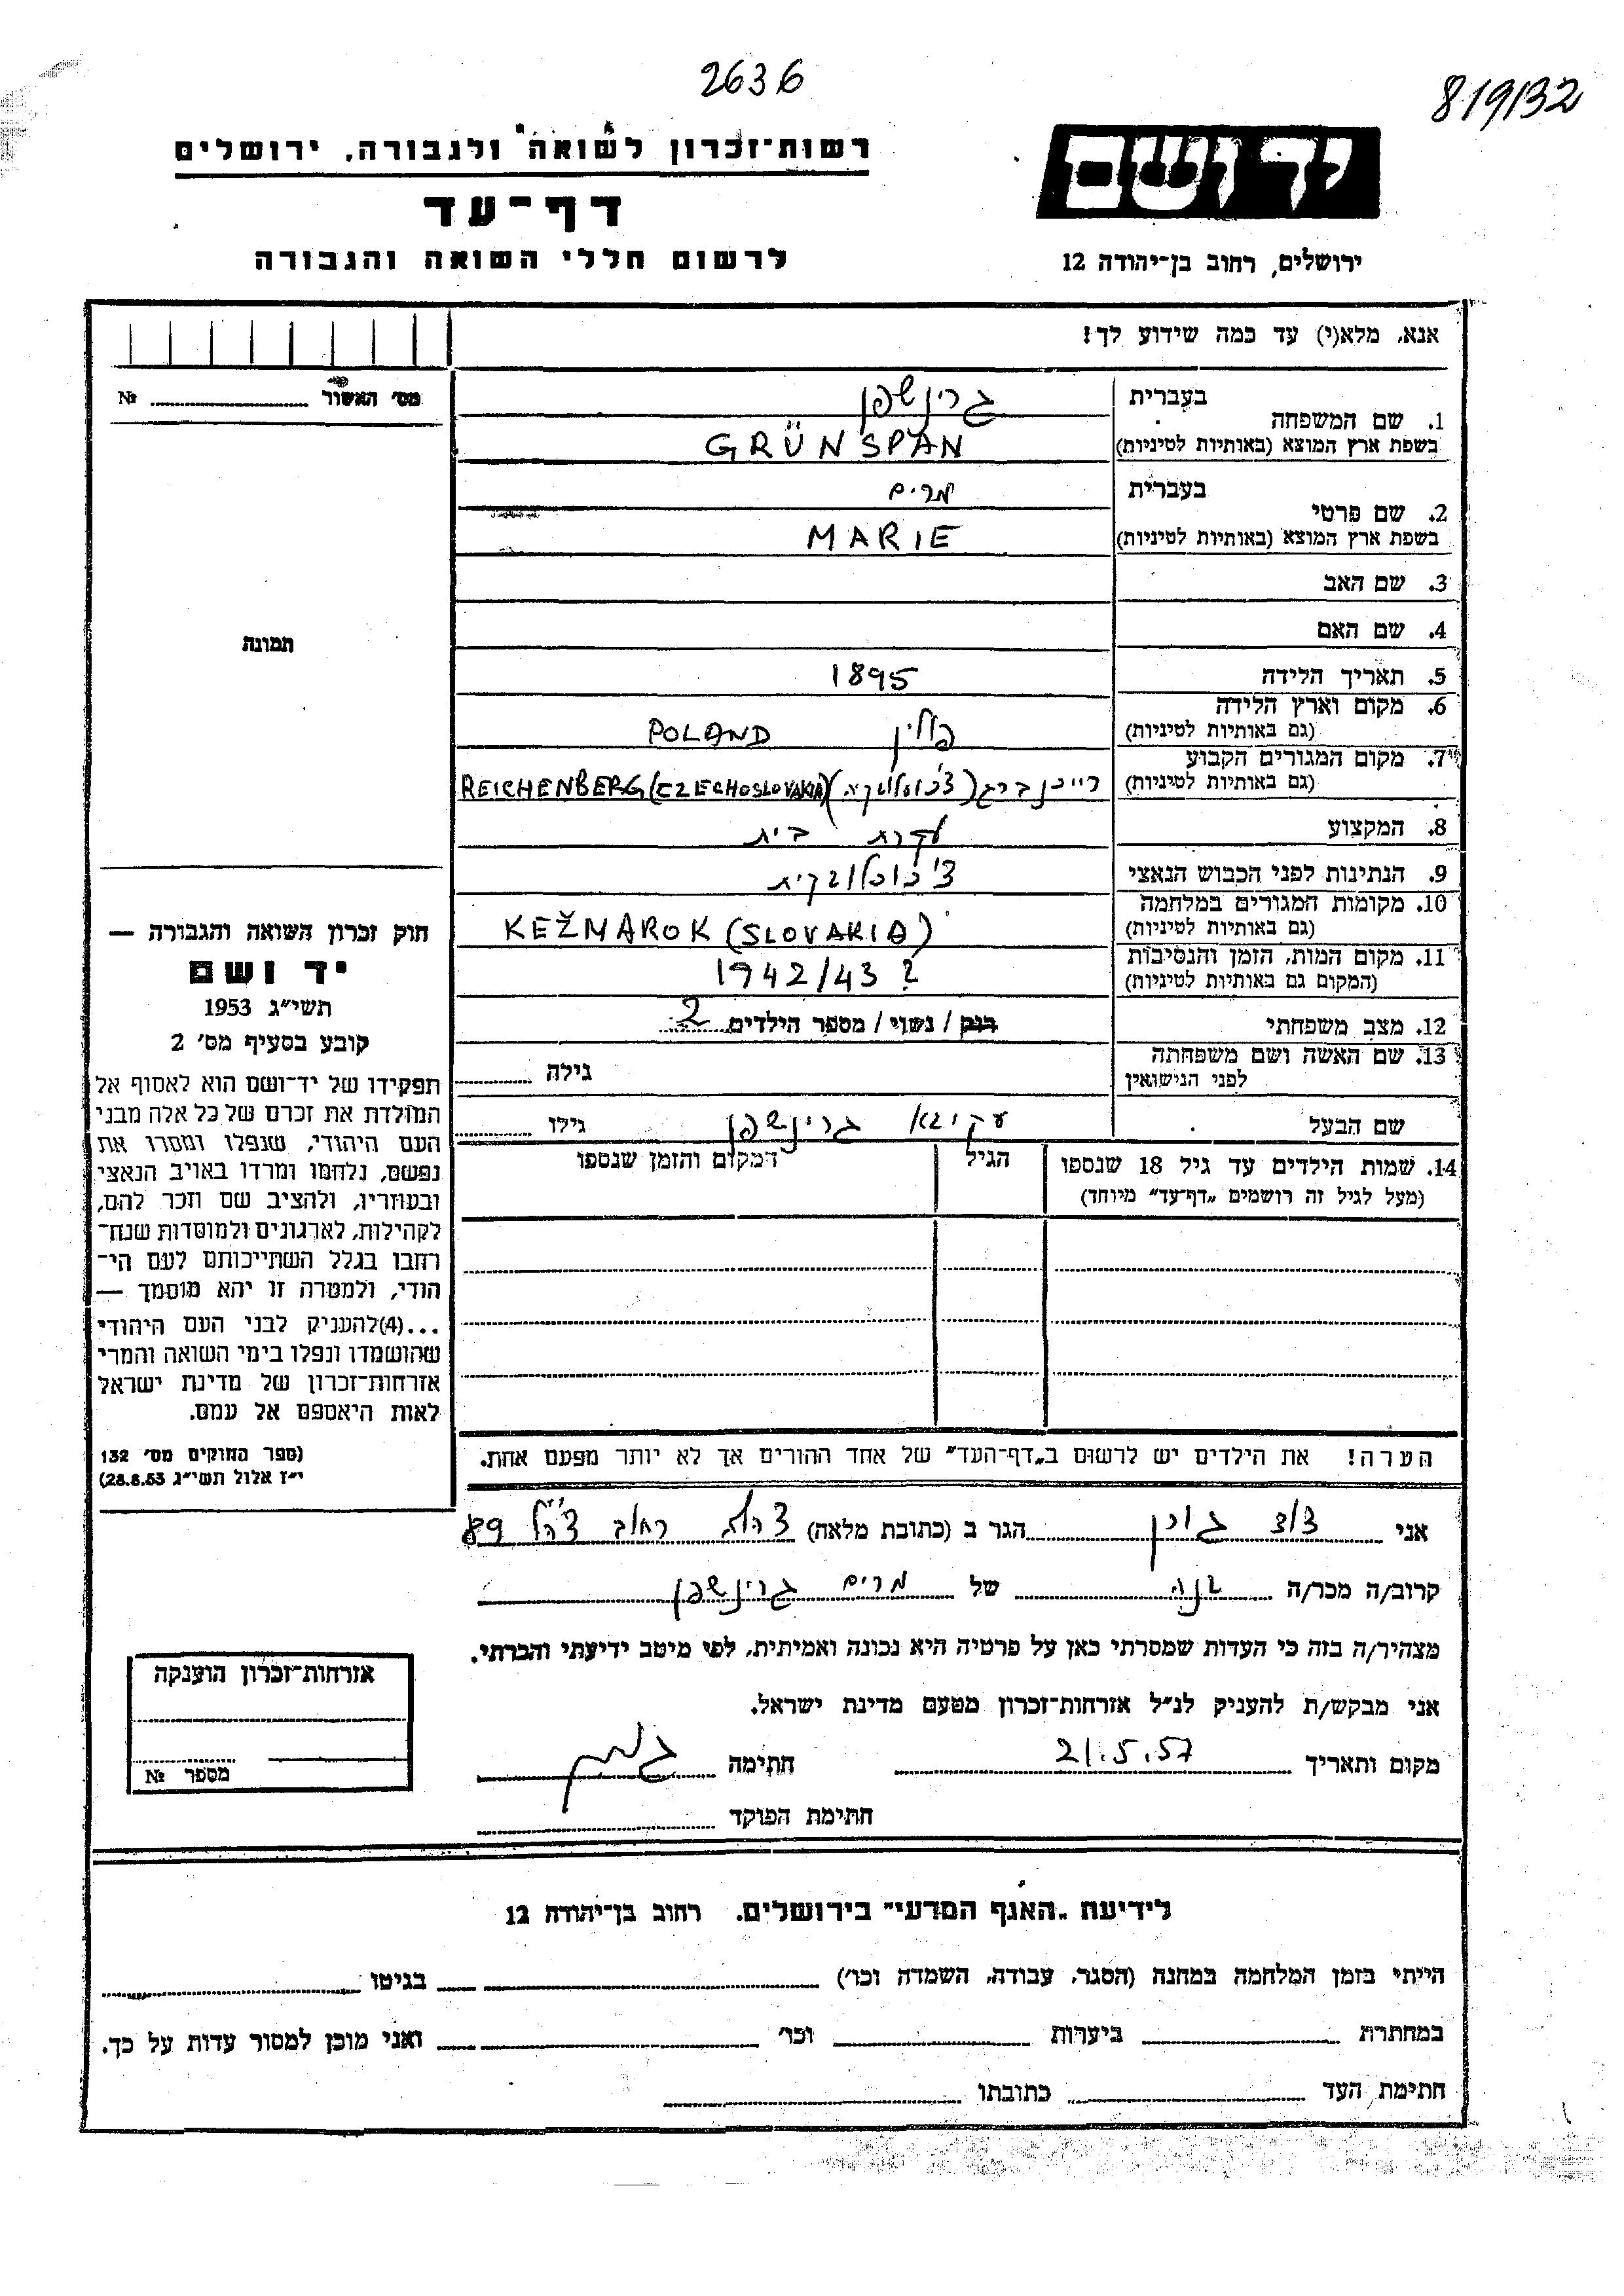 2636
819/32
יד ושם
רשות־זכרון לשואה ולגבורה, ירושלים
דף־עד
לרשום חללי השואה והגבורה
ירושלים, רחוב בן־יהודה 12
אנא, מלא(י) עד כמה שידוע לך!
מס׳ האשור № 
1. שם המשפחה בעברית גרינשפן
בשפת ארץ המוצא (באותיות לטיניות) GRÜNSPAN
2. שם פרטי בעברית מרים
בשפת ארץ המוצא (באותיות לטיניות) MARIE
3. שם האב
4. שם האם
תמונה
5. תאריך הלידה 1895
6. מקום וארץ הלידה
(גם באותיות לטיניות) פולין POLAND
7. מקום המגורים הקבוע
(גם באותיות לטיניות) רייכנברג (צ'כוסלובקיה) REICHENBERG (CZECHOSLOVAKIA)
8. המקצוע עקרת בית
9. הנתינות לפני הכבוש הנאצי צ'כוסלובקית
10. מקומות המגורים במלחמה
(גם באותיות לטיניות) KEŽMAROK (SLOVAKIA)
11. מקום המות, הזמן והנסיבות
(המקום גם באותיות לטיניות) 1942/43 ?
12. מצב משפחתי רווק / נשוי / מספר הילדים 2
13. שם האשה ושם משפחתה
לפני הנישואין גילה
שם הבעל עקיבא גרינשפן גילו
14. שמות הילדים עד גיל 18 שנספו הגיל המקום והזמן שנספו
(מעל לגיל זה רושמים „דף־עד״ מיוחד)
חוק זכרון השואה והגבורה —
יד ושם
תשי״ג 1953
קובע בסעיף מס׳ 2
תפקידו של יד־ושם הוא לאסוף אל
המולדת את זכרם של כל אלה מבני
העם היהודי, שנפלו ומסרו את
נפשם, נלחמו ומרדו באויב הנאצי
ובעוזריו, ולהציב שם וזכר להם,
לקהילות, לארגונים ולמוסדות שנח־
רבו בגלל השתייכותם לעם הי־
הודי, ולמטרה זו יהא מוסמך —
...(4)להעניק לבני העם היהודי
שהושמדו ונפלו בימי השואה והמרי
אזרחות־זכרון של מדינת ישראל
לאות היאספם אל עמם.
(ספר החוקים מס׳ 132
י״ז אלול תשי״ג 28.8.53)
הערה! את הילדים יש לרשום ב„דף־העד״ של אחד ההורים אך לא יותר מפעם אחת.
אני גורן הגר ב (כתובת מלאה) רחוב צה"ל 89
קרוב/ה מכר/ה בנה של מרים גרינשפן
מצהיר/ה בזה כי העדות שמסרתי כאן על פרטיה היא נכונה ואמיתית, לפי מיטב ידיעתי והכרתי.
אני מבקש/ת להעניק לנ״ל אזרחות־זכרון מטעם מדינת ישראל.
מקום ותאריך 21.5.57 חתימה
חתימת הפוקד
אזרחות־זכרון הוענקה
מספר №
לידיעת „האגף המדעי״ בירושלים. רחוב בן־יהודה 12
הייתי בזמן המלחמה במחנה (הסגר, עבודה, השמדה וכו׳) בגיטו
במחתרת ביערות וכו׳ ואני מוכן למסור עדות על כך.
חתימת העד כתובתו